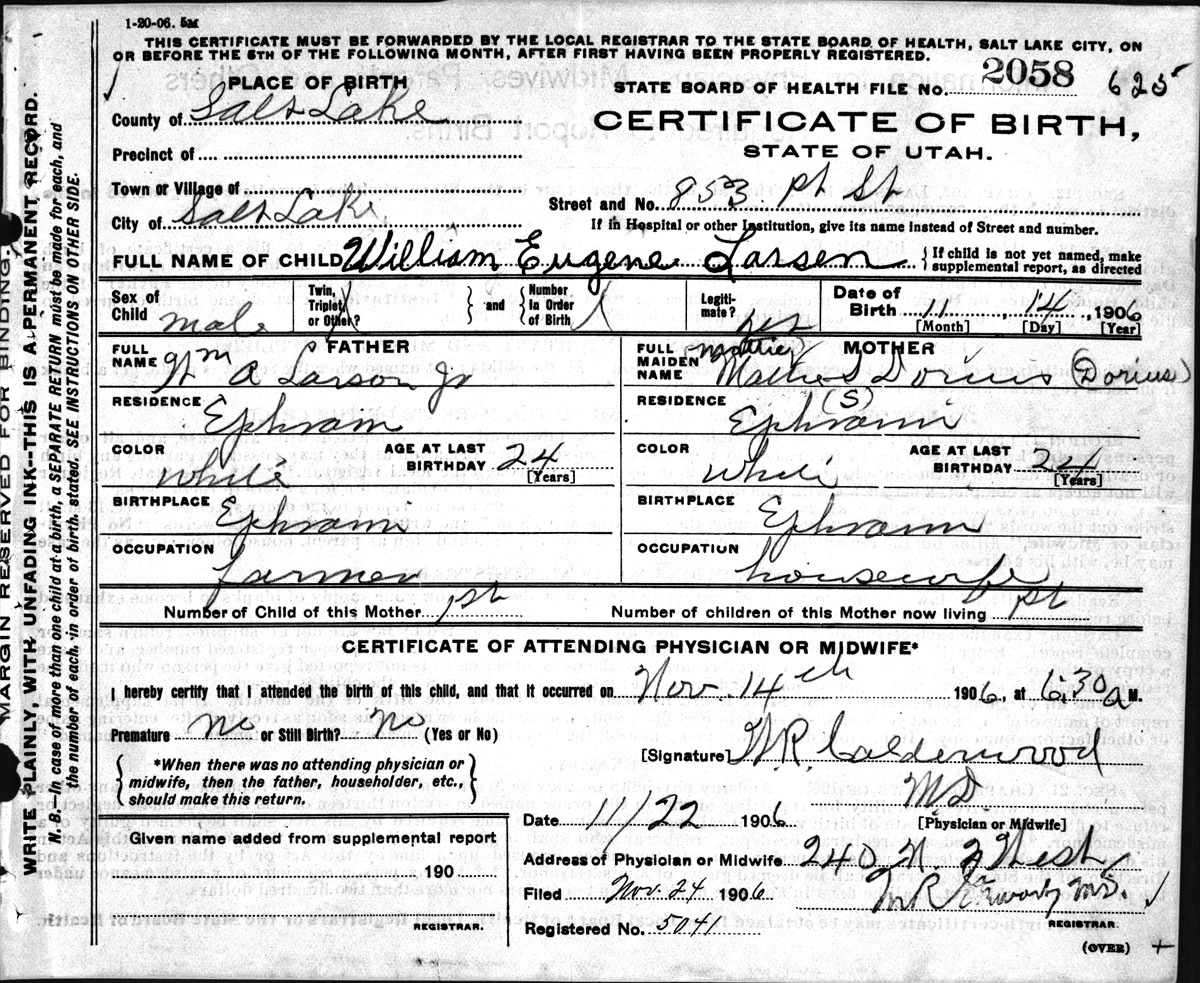 1-20-06. 5M
THIS CERTIFICATE MUST BE FORWARDED BY THE LOCAL REGISTRAR TO THE STATE BOARD OF HEALTH, SALT LAKE CITY, ON
OR BEFORE THE 5TH OF THE FOLLOWING MONTH, AFTER FIRST HAVING BEEN PROPERLY REGISTERED.
PLACE OF BIRTH
STATE BOARD OF HEALTH FILE No. 2058 625
County of Salt Lake
CERTIFICATE OF BIRTH,
STATE OF UTAH.
Precinct of
Town or Village of
City of Salt Lake
Street and No. 853 St
If in Hospital or other Institution, give its name instead of Street and number.
FULL NAME OF CHILD William Eugene Larsen { If child is not yet named, make
supplemental report, as directed
Sex of Child male
Twin, Triplet, or Other? } and { Number In Order of Birth
Legitimate? yes
Date of Birth 11, 14, 1906
[Month] [Day] [Year]
FATHER
FULL NAME Wm A Larson Jr
RESIDENCE Ephraim
COLOR White
AGE AT LAST BIRTHDAY 24 [Years]
BIRTHPLACE Ephraim
OCCUPATION farmer
MOTHER
FULL MAIDEN NAME Mattie S Dorius (Dorius)
(S)
RESIDENCE Ephraim
COLOR White
AGE AT LAST BIRTHDAY 24 [Years]
BIRTHPLACE Ephraim
OCCUPATION housewife
Number of Child of this Mother 1st
Number of children of this Mother now living 1st
CERTIFICATE OF ATTENDING PHYSICIAN OR MIDWIFE*
I hereby certify that I attended the birth of this child, and that it occurred on Nov. 14th 1906, at 6:30 a M.
Premature no or Still Birth? no (Yes or No)
{ *When there was no attending physician or
midwife, then the father, householder, etc.,
should make this return. }
[Signature] W.R. Calderwood
M.D.
[Physician or Midwife]
Date 11/22 1906
Given name added from supplemental report
190
REGISTRAR.
Address of Physician or Midwife. 240 N 2 West
Filed Nov. 24 1906
M.D.
REGISTRAR.
Registered No. 5041
(OVER) +
MARGIN RESERVED FOR BINDING.
WRITE PLAINLY, WITH UNFADING INK--THIS IS A PERMANENT RECORD.
N. B. In case of more than one child at a birth, a SEPARATE RETURN must be made for each, and
the number of each, in order of birth, stated. SEE INSTRUCTIONS ON OTHER SIDE.